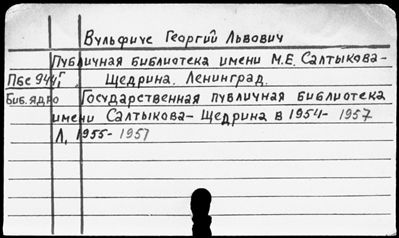 Вульфиус Георгий Львович
Публичная библиотека имени М.Е. Салтыкова-
Пбс 944г Щедрина. Ленинград.
Биб. ядро Государственная публичная библиотека
имени Салтыкова-Щедрина в 1954-1957
Л, 1955-1957